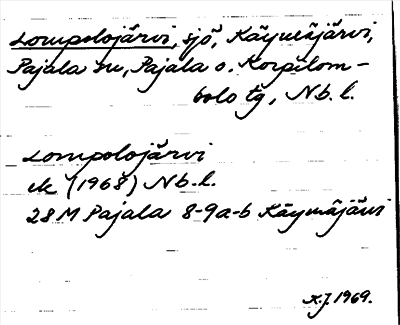 Lompolojärvi, sjö, Käymäjärvi,
Pajala sn, Pajala o. Korpilom-
bolo tg, Nb. l.
Lompolojärvi
ek (1968) Nb.l.
28 M Pajala 8-9a-b Käymäjärvi
K.J. 1969.